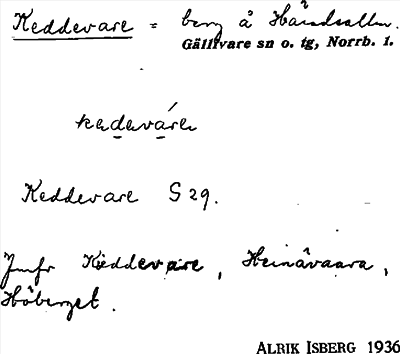 Keddevare = berg å Häradsallm.
Gällivare sn o. tg, Norrb. l.
kedevárɛ
Keddevare S 29.
Jmfr Kieddevare, Heinâvaara,
Höberget.
ALRIK ISBERG 1936